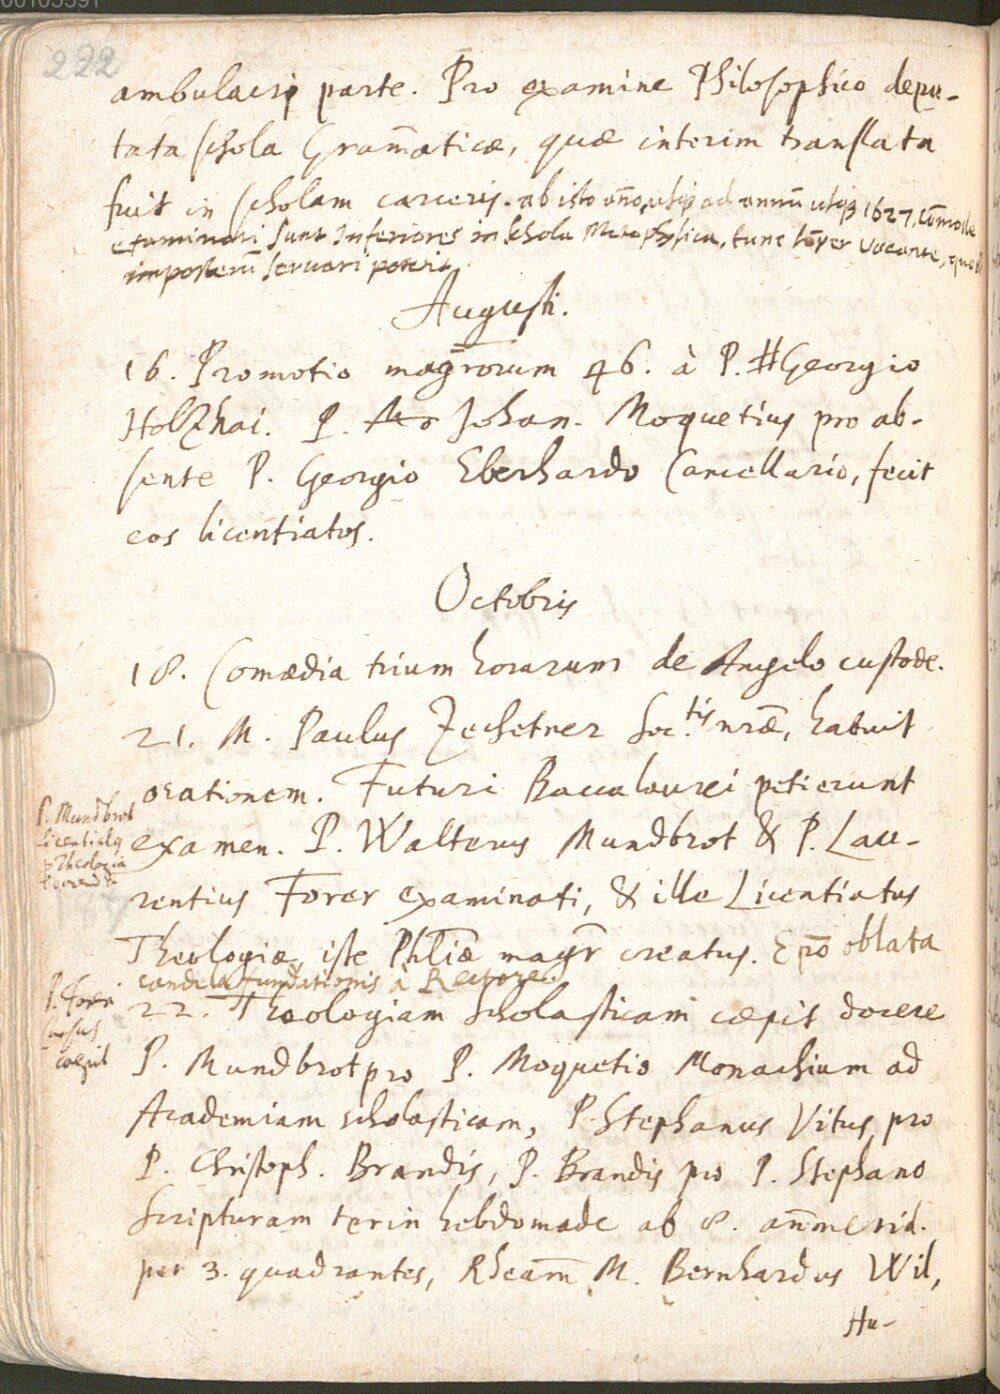 222
ambulacri parte. Pro examine Philosophico depu-
tata schola Gram̄aticæ, quæ interim translata
fuit in scholam carceris. ab isto año, usq; ad annū usq; 1627, cōmode
examinari sunt Inferiores in schola Metaphysica, tunc semper vacante, quod
imposterū servari poterit.
Augusti.
16. Promotio magr̄orum 46. à P. Georgio
Holzhai. P. Johan. Moquetius pro ab-
sente P. Georgio Eberhardo Cancellario, fecit
eos licentiatos.
Octobris
18. Comædia trium horarum de Angelo custode.
21. M. Paulus Zechetner Soc.tis nrǣ, habuit
orationem. Futuri Baccalaurei petierunt
examen. P. Walterus Mundbrot & P. Lau-
rentius Forer examinati, & ille Licentiatus
Theologiæ, iste Phl̄iæ magr̄ creatus. E pō oblata
candela fundationis à Rectore.
P. Mundbrot
licentiatus
Theologia
P. Forer
cursus
cœpit
22. Theologiam scholasticam cæpit docere
P. Mundbrot pro P. Moquetio Monachium ad
Academiam scholasticam, P. Stephanus Vitus pro
P. Christoph. Brandis, P. Brandis pro P. Stephano
Scripturam ter in hebdomade ab 8. an̄merid.
per 3. quadrantes, Rhēam̄ M. Bernhardus Wil,
Hu-